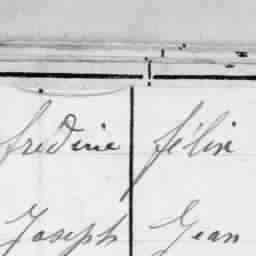 fredine félix
Joseph Jean